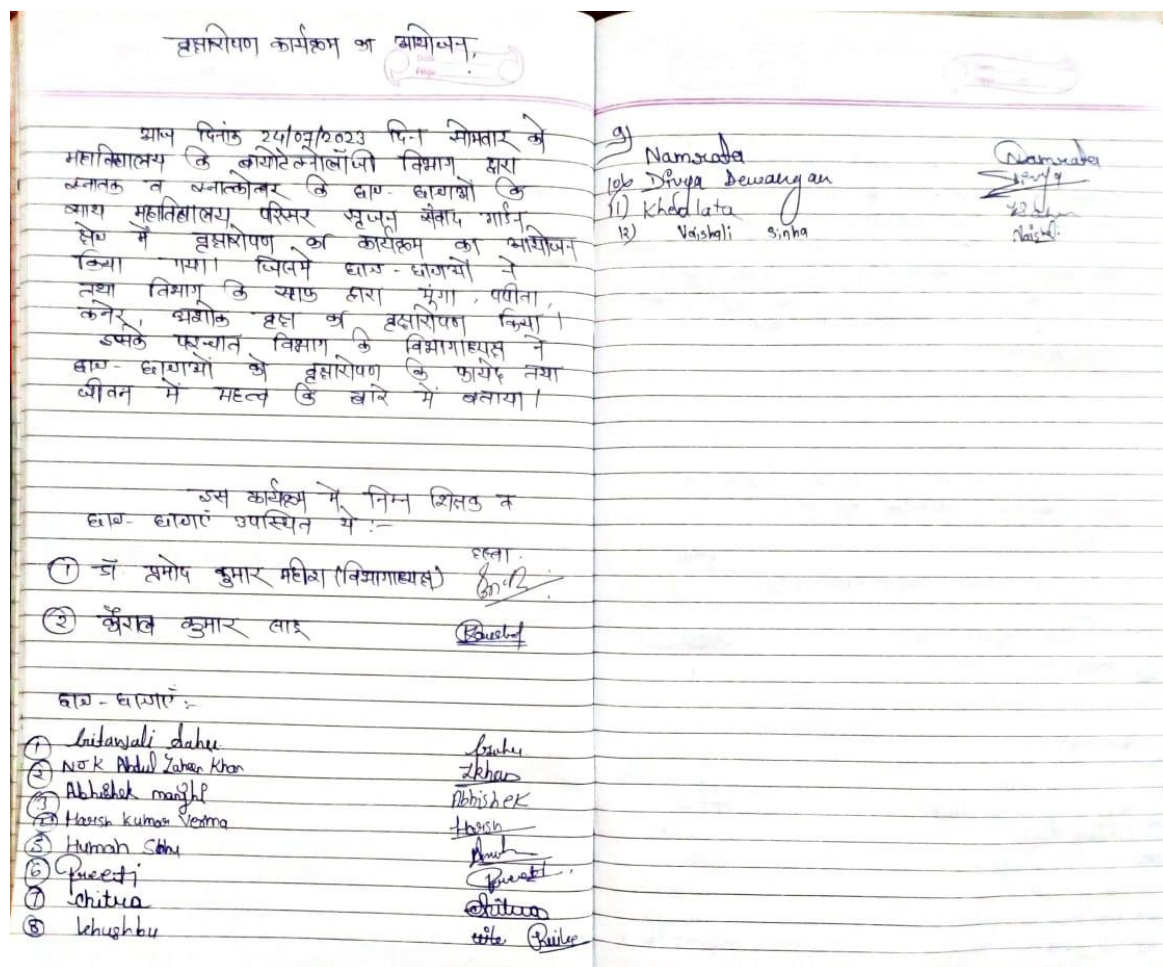 वृक्षारोपण कार्यक्रम का आयोजन,
Date
Page
आज दिनांक 24/07/2023 दिन सोमवार को
महाविद्यालय कि बायोटेक्नोलॉजी विभाग द्वारा
स्नातक व स्नात्कोत्तर कि छात्र-छात्राओं कि
साथ महाविद्यालय परिसर सृजन संवाद गार्डन
क्षेत्र में वृक्षारोपण का कार्यक्रम का आयोजन
किया गया। जिसमें छात्र-छात्राओं ने
तथा विभाग कि स्टाफ द्वारा मूंगा, पपीता,
कनेर, अशोक वृक्ष का वृक्षारोपण किया।
इसके पश्चात विभाग के विभागाध्यक्ष ने
छात्र-छात्राओं को वृक्षारोपण कि फायदे तथा
जीवन में महत्व कि बारे में बताया।
इस कार्यक्रम में निम्न शिक्षक व
छात्र-छात्राएं उपस्थित थे :-
हस्ता.
① डॉ प्रमोद कुमार महीश (विभागाध्यक्ष)
② कुमार साहू
छात्र-छात्राएँ :-
① Gitanjali Sahu Gsahu
② NOK Abdul Zaheer Khan Zkhan
③ Abhishek Abhishek
④ Harish Kumar Verma Harish
⑤ Human
⑥ Preeti Preeti
⑦ Chitra Chitra
⑧ Khushbu
9) Namrata Namrata
10) Divya Dewangan Divya
11) Khedlata
12) Vaishali Sinha Vaishali